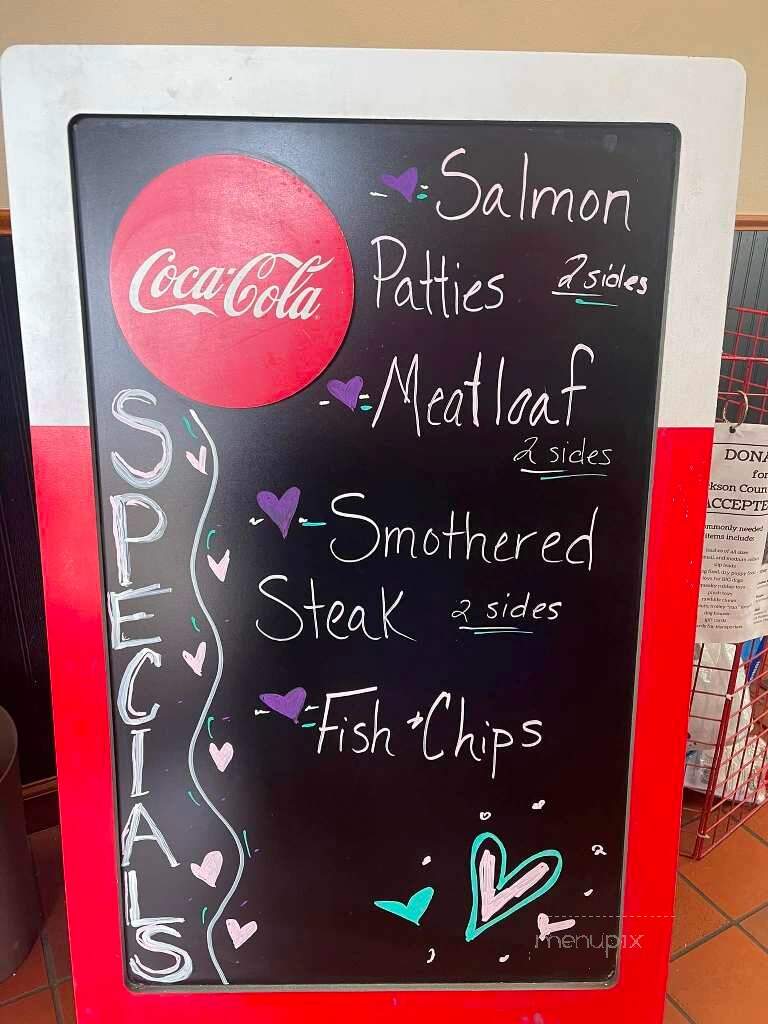 Coca-Cola
SPECIALS
Salmon
Patties 2 sides
Meatloaf
2 sides
Smothered
Steak 2 sides
Fish + Chips
DONA
for
ckson Coun
ACCEPTE
ommonly needed
items include:
menupix